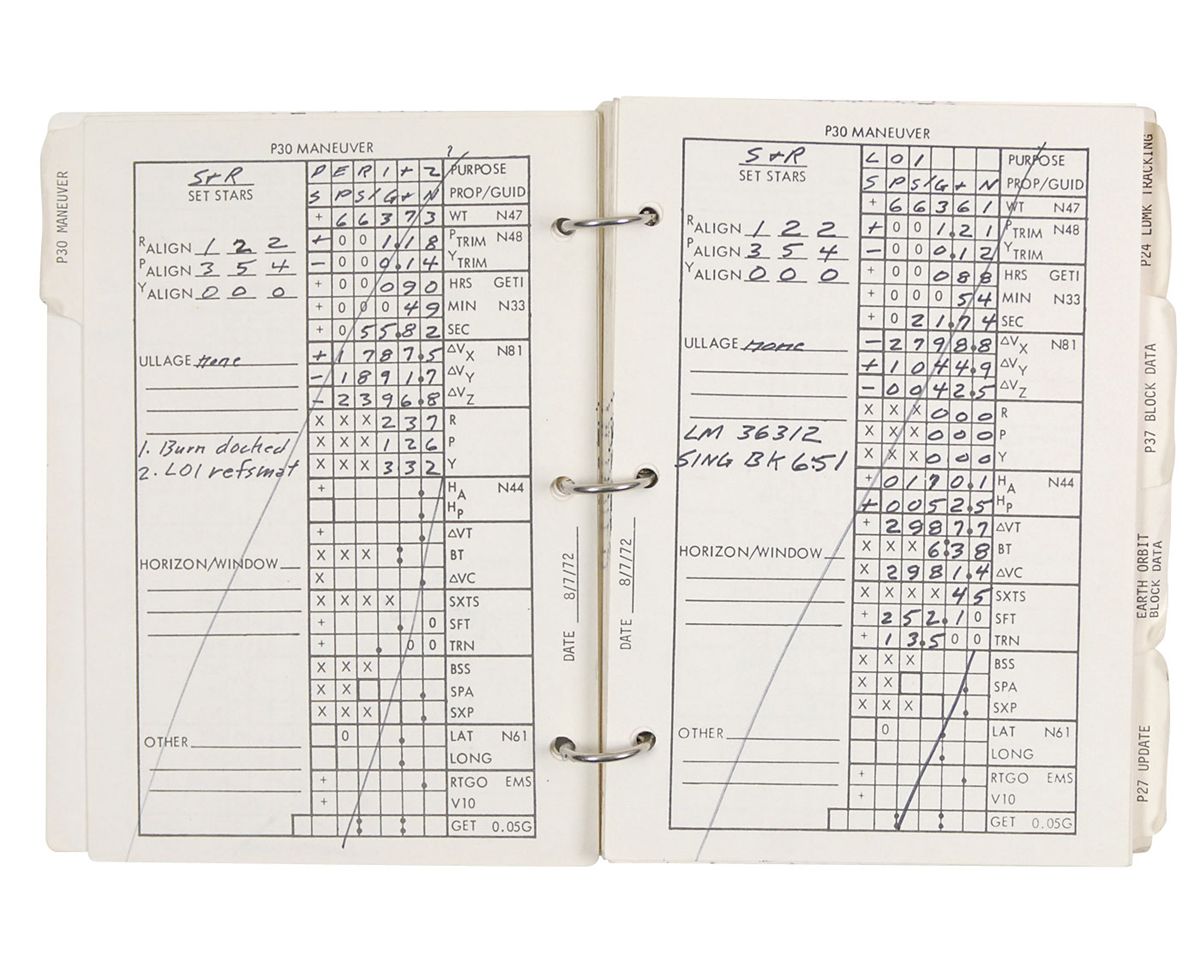 P30 MANEUVER
P30 MANEUVER
S+R
SET STARS
R ALIGN 1 2 2
P ALIGN 3 5 4
Y ALIGN 0 0 0
ULLAGE none
1. Burn docked
2. LOI refsmat
HORIZON/WINDOW
OTHER
P E R I + 2 PURPOSE
S P S / G + N PROP/GUID
+ 6 6 3 7 3 WT N47
+ 0 0 1.1 8 P TRIM N48
- 0 0 0.1 4 Y TRIM
+ 0 0 0 9 0 HRS GETI
+ 0 0 0 4 9 MIN N33
+ 0 5 5.8 2 SEC
+ 1 7 8 7.5 ΔVX N81
- 1 8 9 1.7 ΔVY
- 2 3 9 6.8 ΔVZ
X X X 2 3 7 R
X X X 1 2 6 P
X X X 3 3 2 Y
+ . HA N44
. HP
+ . ΔVT
X X X : BT
X . ΔVC
X X X X SXTS
+ . 0 SFT
+ . 0 0 TRN
X X X BSS
X X . SPA
X X X . SXP
0 . LAT N61
. LONG
+ . RTGO EMS
+ V10
: : GET 0.05G
DATE 8/7/72
P30 MANEUVER
S+R
SET STARS
R ALIGN 1 2 2
P ALIGN 3 5 4
Y ALIGN 0 0 0
ULLAGE none
LM 36312
SING BK 651
HORIZON/WINDOW
OTHER
L O I PURPOSE
S P S / G + N PROP/GUID
+ 6 6 3 6 1 WT N47
+ 0 0 1.2 1 P TRIM N48
- 0 0 0.1 2 Y TRIM
+ 0 0 0 8 8 HRS GETI
+ 0 0 0 5 4 MIN N33
+ 0 2 1.7 4 SEC
- 2 7 9 8.8 ΔVX N81
+ 1 0 4 4.9 ΔVY
- 0 0 4 2.5 ΔVZ
X X X 0 0 0 R
X X X 0 0 0 P
X X X 0 0 0 Y
+ 0 1 7 0.1 HA N44
+ 0 0 5 2.5 HP
+ 2 9 8 7.7 ΔVT
X X X 6:3 8 BT
X 2 9 8 1.4 ΔVC
X X X X 4 5 SXTS
+ 2 5 2.1 0 SFT
+ 1 3.5 0 0 TRN
X X X BSS
X X . SPA
X X X . SXP
0 . LAT N61
. LONG
+ . RTGO EMS
+ V10
: : GET 0.05G
DATE 8/7/72
P24 LDMK TRACKING
P37 BLOCK DATA
EARTH ORBIT
BLOCK DATA
P27 UPDATE